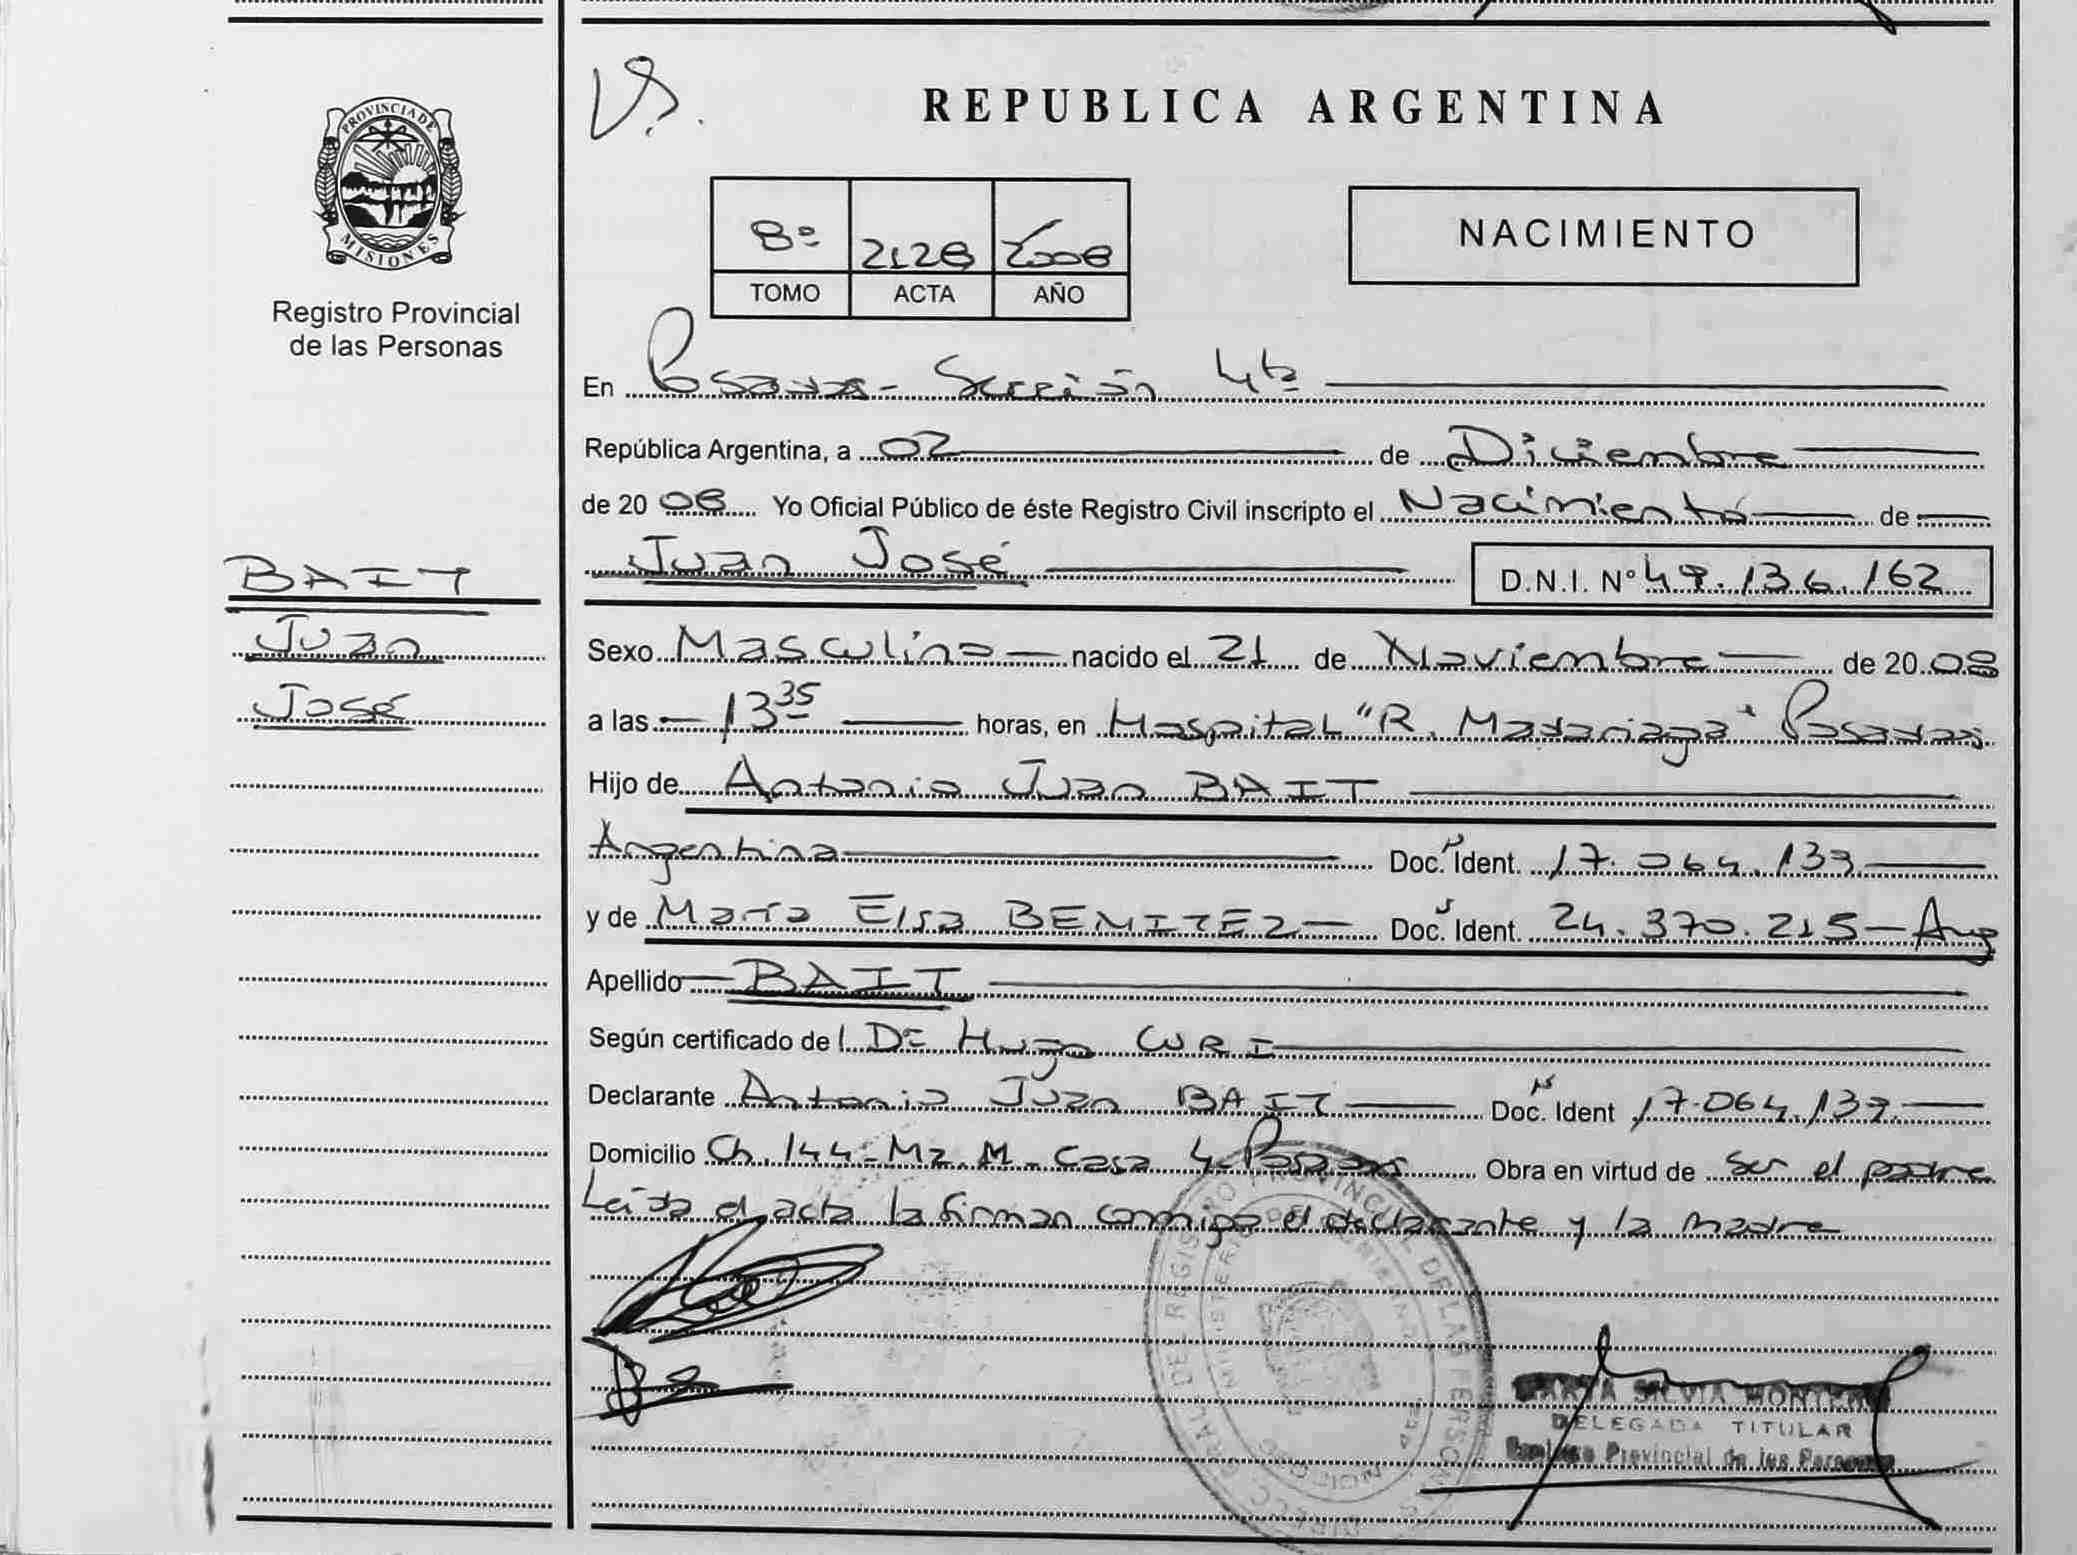 PROVINCIA DE
MISIONES
Registro Provincial
de las Personas
BAIT
Juan
José
REPUBLICA ARGENTINA
8º 2128 2008
TOMO ACTA AÑO
NACIMIENTO
En Posadas - Sección 4ta
República Argentina, a 02 de Diciembre
de 2008 Yo Oficial Público de éste Registro Civil inscripto el Nacimiento de
Juan José D.N.I. Nº 49.136.162
Sexo Masculino nacido el 21 de Noviembre de 2008
a las 13 35 horas, en Hospital "R. Madariaga" Posadas
Hijo de Antonio Juan BAIT
Argentina Doc. Ident. 17.064.139
y de María Elsa BENITEZ Doc. Ident. 24.370.215 - Arg
Apellido BAIT
Según certificado de l Dr Hugo CURI
Declarante Antonio Juan BAIT Doc. Ident 17.064.139
Domicilio Ch. 144 - Mz. M - Casa 4 - Posadas Obra en virtud de ser el padre
Leída el acta la firman conmigo el declarante y la madre
SILVIA
DELEGADA TITULAR
Provincial de las Personas